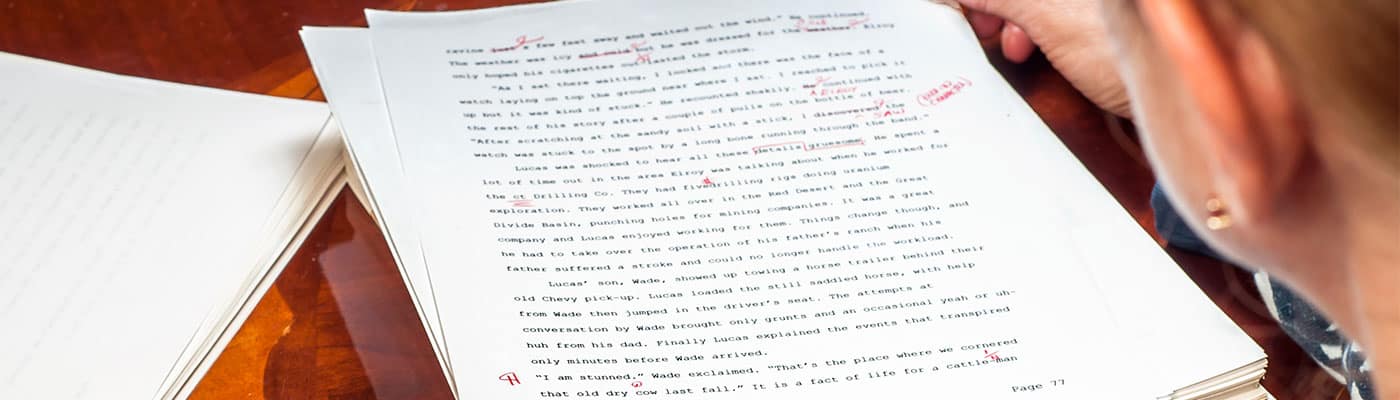 ravine just a few feet away and waited out the wind." He continued.
The weather was icy and cold but he was dressed for the weather. Elroy
only hoped his cigarettes outlasted the storm.
"As I sat there waiting, I looked and there was the face of a
watch laying on top the ground near where I sat. I reached to pick it
up but it was kind of stuck." He recounted shakily. He continued with
ELROY
the rest of his story after a couple of pulls on the bottle of beer.
"After scratching at the sandy soil with a stick, I discovered the
SAW
watch was stuck to the spot by a long bone running through the band."
Lucas was shocked to hear all these details gruesome. He spent a
lot of time out in the area Elroy was talking about when he worked for
the ct Drilling Co. They had fivedrilling rigs doing uranium
exploration. They worked all over in the Red Desert and the Great
Divide Basin, punching holes for mining companies. It was a great
company and Lucas enjoyed working for them. Things change though, and
he had to take over the operation of his father's ranch when his
father suffered a stroke and could no longer handle the workload.
Lucas' son, Wade, showed up towing a horse trailer behind their
old Chevy pick-up. Lucas loaded the still saddled horse, with help
from Wade then jumped in the driver's seat. The attempts at
conversation by Wade brought only grunts and an occasional yeah or uh-
huh from his dad. Finally Lucas explained the events that transpired
only minutes before Wade arrived.
"I am stunned." Wade exclaimed. "That's the place where we cornered
that old dry cow last fall." It is a fact of life for a cattle-man
Page 77